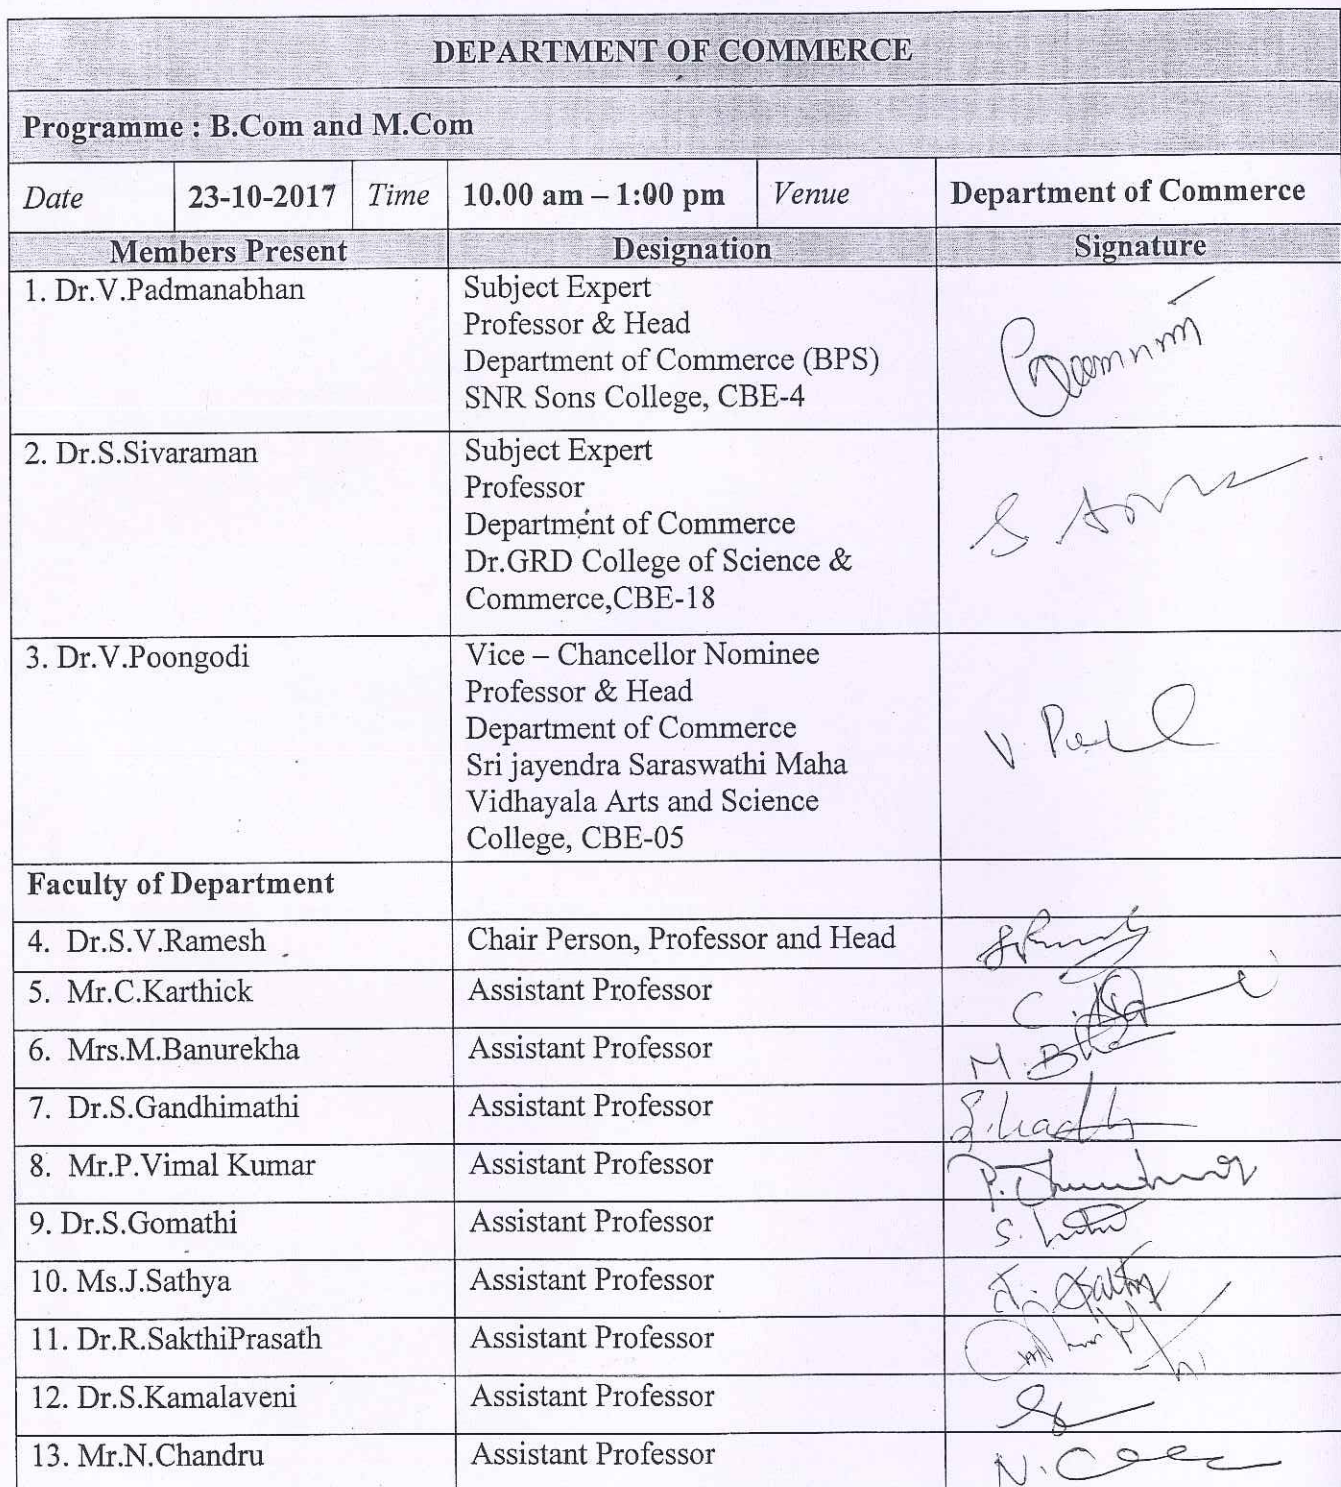 DEPARTMENT OF COMMERCE
Programme : B.Com and M.Com
Date 23-10-2017 Time 10.00 am – 1:00 pm Venue Department of Commerce
Members Present Designation Signature
1. Dr.V.Padmanabhan Subject Expert
Professor & Head
Department of Commerce (BPS)
SNR Sons College, CBE-4
2. Dr.S.Sivaraman Subject Expert
Professor
Department of Commerce
Dr.GRD College of Science &
Commerce,CBE-18
3. Dr.V.Poongodi Vice – Chancellor Nominee
Professor & Head
Department of Commerce
Sri jayendra Saraswathi Maha
Vidhayala Arts and Science
College, CBE-05
Faculty of Department
4. Dr.S.V.Ramesh Chair Person, Professor and Head
5. Mr.C.Karthick Assistant Professor
6. Mrs.M.Banurekha Assistant Professor
7. Dr.S.Gandhimathi Assistant Professor
8. Mr.P.Vimal Kumar Assistant Professor
9. Dr.S.Gomathi Assistant Professor
10. Ms.J.Sathya Assistant Professor
11. Dr.R.SakthiPrasath Assistant Professor
12. Dr.S.Kamalaveni Assistant Professor
13. Mr.N.Chandru Assistant Professor